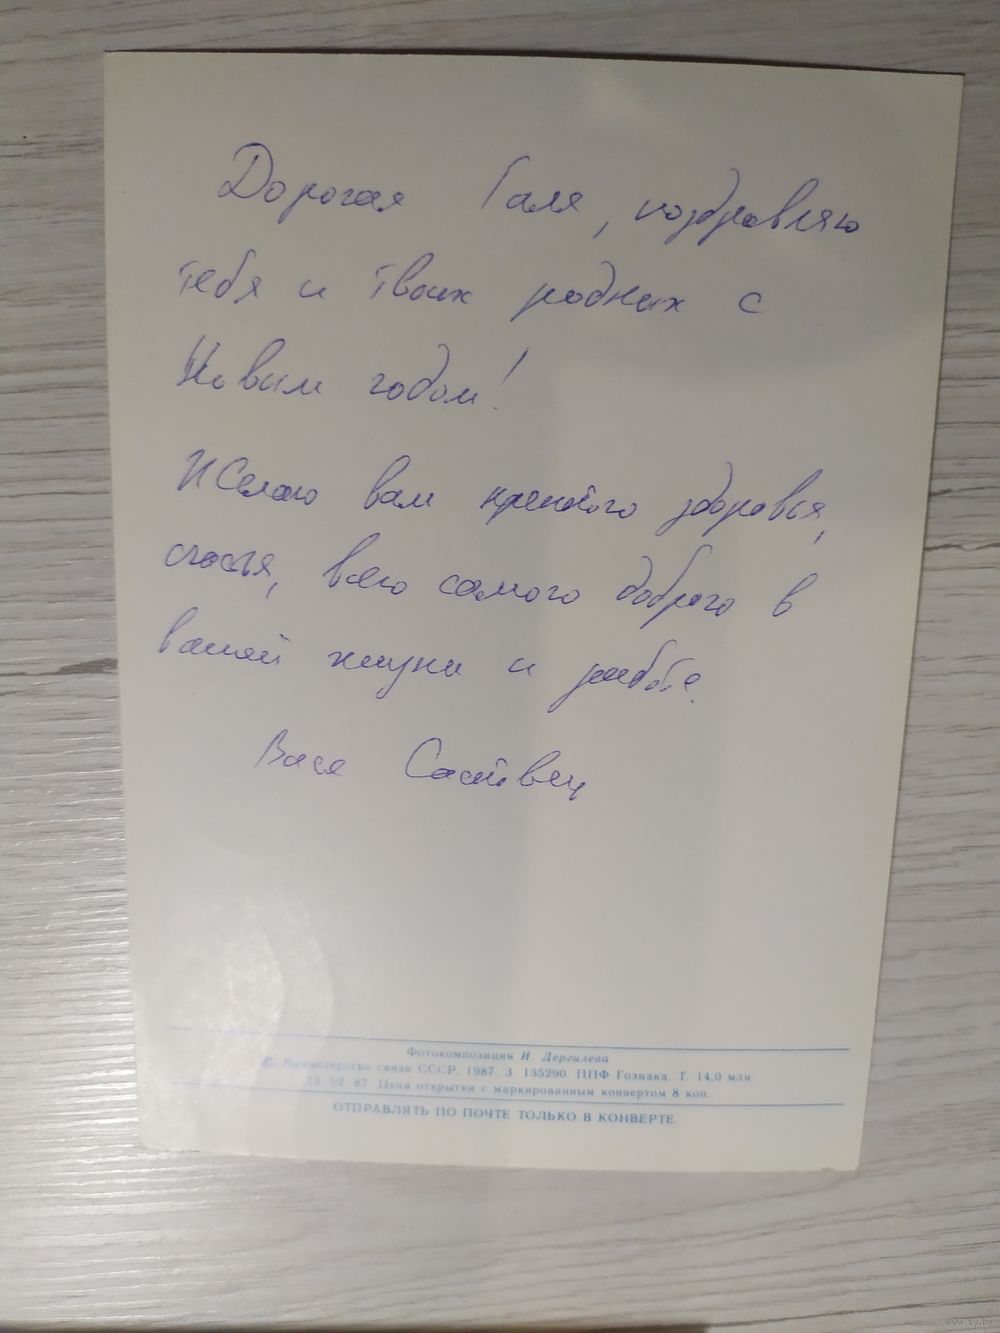 Дорогая Галя, поздравляю
тебя и твоих родных с
Новым годом!
Желаю вам крепкого здоровья,
счастья, всего самого доброго в
вашей жизни и работе.
Вася
Фотокомпозиция И. Дергилева
© Министерство связи СССР. 1987. З. 135290. ППФ Гознака. Т. 14,0 млн.
13. 02. 87. Цена открытки с маркированным конвертом 8 коп.
ОТПРАВЛЯТЬ ПО ПОЧТЕ ТОЛЬКО В КОНВЕРТЕ
www.ay.by